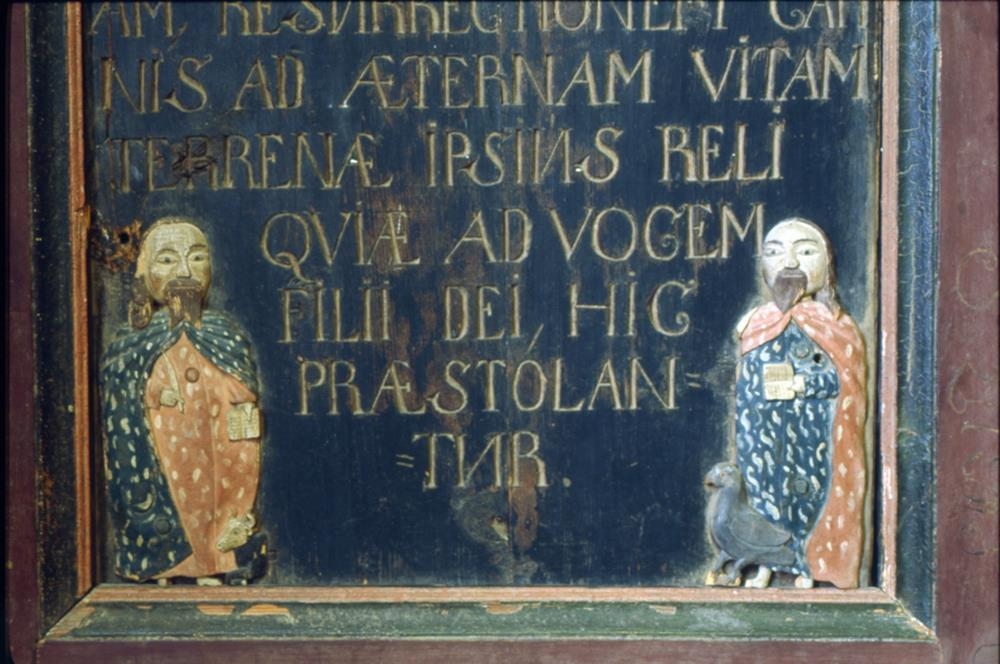 AM, RESURRECTIONEM CAR
NIS AD ÆTERNAM VITAM
TERRENÆ IPSIUS RELI
QVIÆ AD VOCEM
FILII DEI, HIC
PRÆSTOLAN=
=TUR.